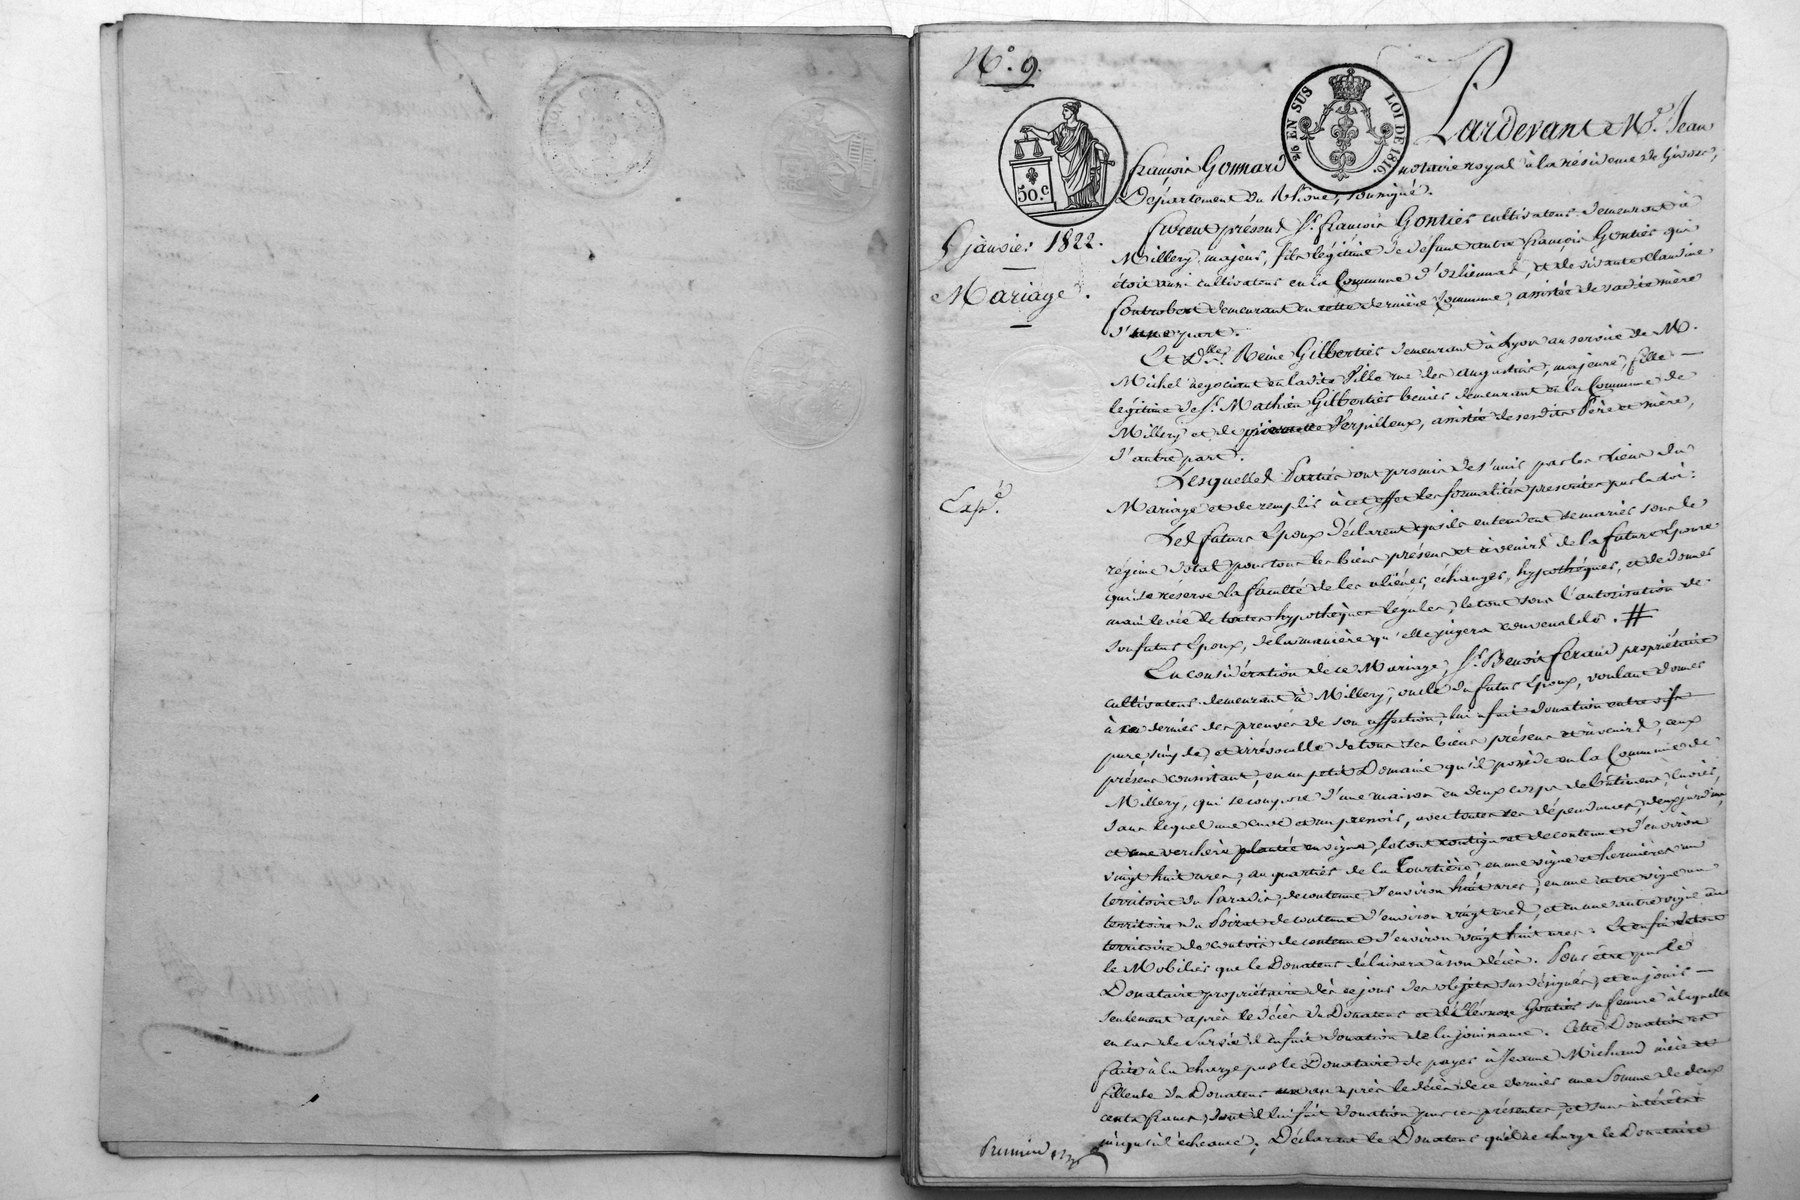 N.° 9.
2/6 EN SUS LOI DE 1816.
50.c
5 janvier 1822.
Mariage.
Exp.é
Pardevant M.e Jean
françois Gonnard notaire royal à la résidence de Givors,
Département du Rhône, soussigné.
furent présens S.r françois Gontier cultivateur demeurant à
Millery, majeur, fils légitime de défunt autre françois Gontier qui
étoit aussi cultivateur en la Commune d'Orliennas, et de vivante Claudine
demeurant en cette dernière Commune, assisté de sadite mère
d'une part.
Et D.lle Reine Gilbertier demeurant à Lyon au service de M.
Michel négociant en ladite Ville rue des augustins, majeure, fille
légitime de S.r Mathieu Gilbertier demeurant en la Commune de
Millery et de pierrette Verpilleux, assistée de sesdits Père et mère,
d'autre part.
Lesquelles Parties ont promis de s'unir par les liens du
Mariage et de remplir à cet effet les formalités prescrites par la loi:
Les futurs Epoux déclarent qu'ils entendent se marier sous le
régime dotal pour tous les biens présens et à venir de la future Epouse
qui se réserve la faculté de les aliéner, échanger, hypothéquer, et de donner
main levée de toutes hypothèques légales, le tout sous l'autorisation de
son futur Epoux, de la manière qu'elle jugera convenable. #
En considération de ce Mariage, S.r Benoit feraud propriétaire
cultivateur demeurant à Millery, oncle du futur Epoux, voulant donner
à ce dernier des preuves de son affection, lui fait donation entre vifs
pure, simple, et irrévocable de tous ses biens présens et à venir, ceux
présens consistant, en un petit Domaine qu'il possède en la Commune de
Millery, qui se compose d'une maison en deux corps de bâtiment, cuvier,
dans lequel une cuve et un pressoir, avec toutes ses dépendances, deux jardins,
et une verchère plantée en vigne, le tout contigu et de contenue d'environ
vingt huit ares, au quartier de la Tourtière, en une vigne et hermières au
territoire du Paradis, de contenue d'environ huit ares, en une autre vigne au
territoire du Poirat de contenue d'environ vingt ares, et en une autre vigne au
territoire de de contenue d'environ vingt huit ares. Et enfin de tout
le Mobilier que le Donateur délaissera à son décès. Pour être par le
Donataire propriétaire dès ce jour des objets sus désignés, et en jouir
seulement après le décès du Donateur et d'Eléonore Gontier sa femme à laquelle
en cas de survie il en fait donation de la jouissance. Cette Donation est
faite à la charge par le Donataire de payer à Jeanne Michaud nièce et
filleule du Donateur un an après le décès de ce dernier une somme de deux
cents francs, dont il lui fait donation par ces présentes, et sans intérêts
jusqu'à l'échéance; Déclarant le Donateur qu'il ne charge le Donataire